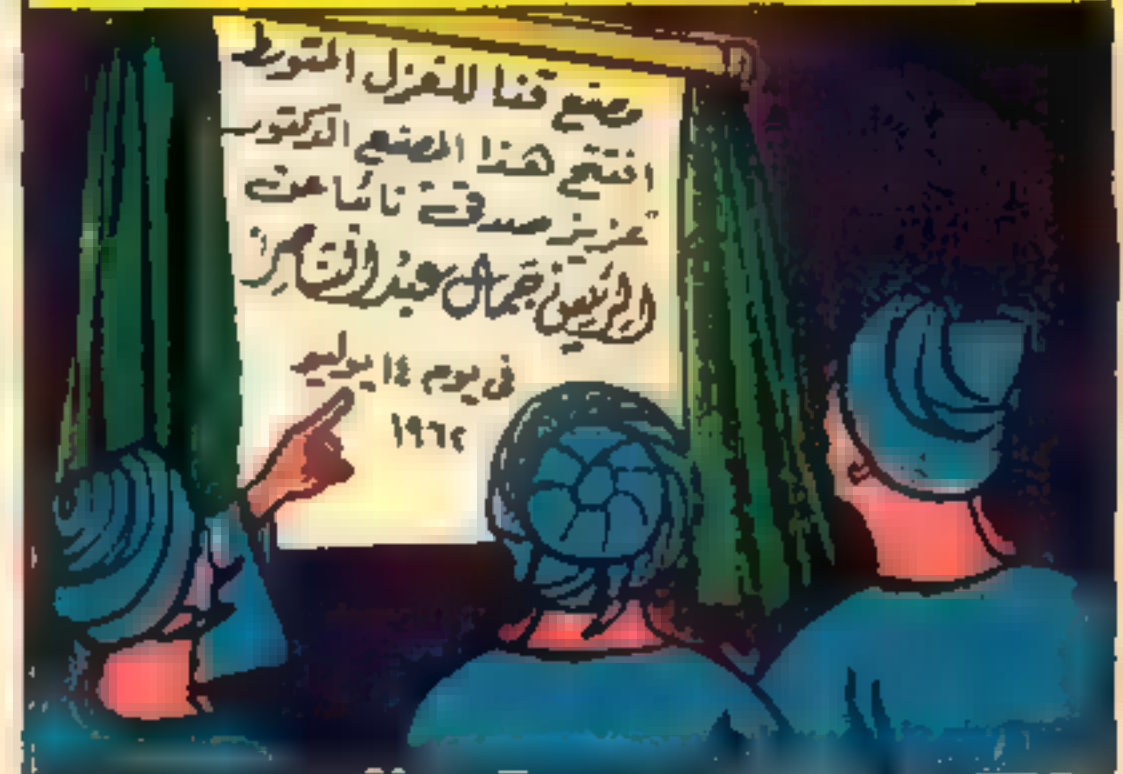 مصنع قنا للغزل المتوسط
افتتح هذا المصنع الدكتور
عزيز صدقى نائبا عن
الرئيس جمال عبد الناصر
فى يوم ١٤ يوليو
١٩٦٢